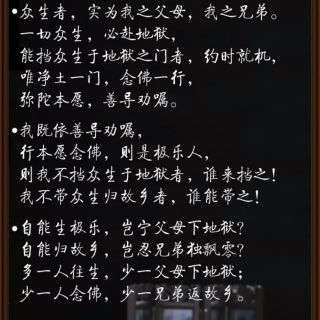 •众生者，实为我之父母，我之兄弟。
一切众生，必赴地狱，
能挡众生于地狱之门者，约时就机，
唯净土一门，念佛一行，
弥陀本愿，善导劝嘱。
•我既依善导劝嘱，
行本愿念佛，则是极乐人，
则我不挡众生于地狱者，谁来挡之！
我不带众生归故乡者，谁能带之！
•自能生极乐，岂宁父母下地狱？
自能归故乡，岂忍兄弟独飘零？
多一人往生，少一父母下地狱；
少一人念佛，少一兄弟返故乡。